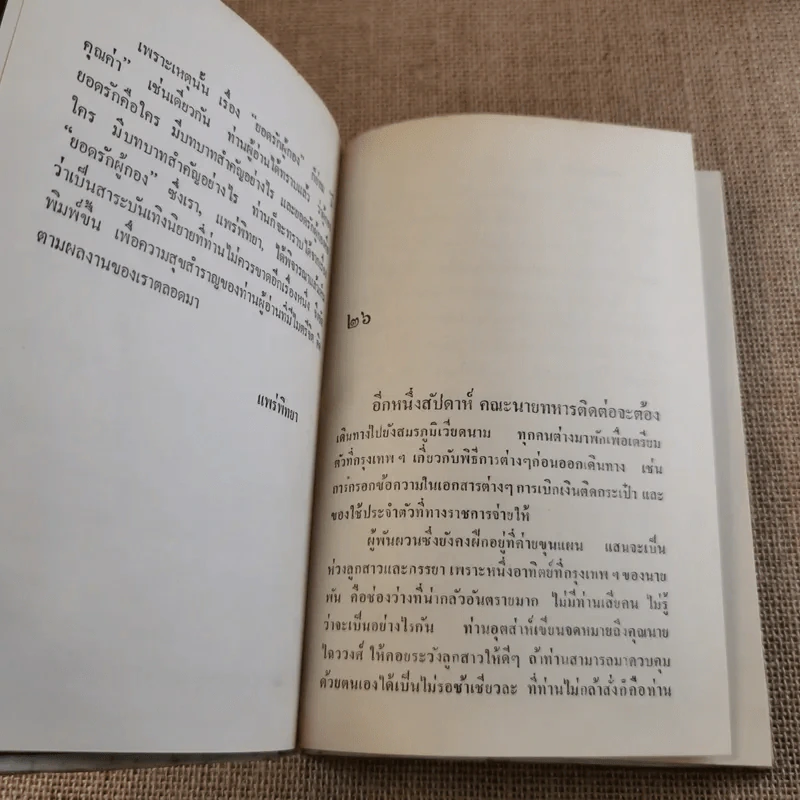 เพราะเหตุนั้น เรื่อง "ยอดรักผู้กอง"
คุณค่า" เช่นเดียวกัน ท่านผู้อ่านได้ทราบแล้ว
ยอดรักคือใคร มีบทบาทสำคัญอย่างไร และยอดรักผู้กอง
ใคร มีบทบาทสำคัญอย่างไร ท่านก็จะทราบได้
"ยอดรักผู้กอง" ซึ่งเรา, แพร่พิทยา, ได้พิจารณาแล้ว
ว่าเป็นสาระบันเทิงนิยายที่ท่านไม่ควรขาดอีกเรื่องหนึ่ง
พิมพ์ขึ้น เพื่อความสุขสำราญของท่านผู้อ่านที่มีไมตรีจิต
ตามผลงานของเราตลอดมา
แพร่พิทยา
๒๖
อีกหนึ่งสัปดาห์ คณะนายทหารติดต่อจะต้อง
เดินทางไปยังสมรภูมิเวียดนาม ทุกคนต่างมาพักเพื่อเตรียม
ตัวที่กรุงเทพ ฯ เกี่ยวกับพิธีการต่างๆก่อนออกเดินทาง เช่น
การกรอกข้อความในเอกสารต่างๆ การเบิกเงินติดกระเป๋า และ
ของใช้ประจำตัวที่ทางราชการจ่ายให้
ผู้พันผวนซึ่งยังคงฝึกอยู่ที่ค่ายขุนแผน แสนจะเป็น
ห่วงลูกสาวและภรรยา เพราะหนึ่งอาทิตย์ที่กรุงเทพ ฯ ของนาย
พัน คือช่องว่างที่น่ากลัวอันตรายมาก ไม่มีท่านเสียคน ไม่รู้
ว่าจะเป็นอย่างไรกัน ท่านอุตส่าห์เขียนจดหมายถึงคุณนาย
ไฉววงศ์ ให้คอยระวังลูกสาวให้ดีๆ ถ้าท่านสามารถมาควบคุม
ด้วยตนเองได้เป็นไม่รอช้าเชียวละ ที่ท่านไม่กล้าสั่งก็คือท่าน